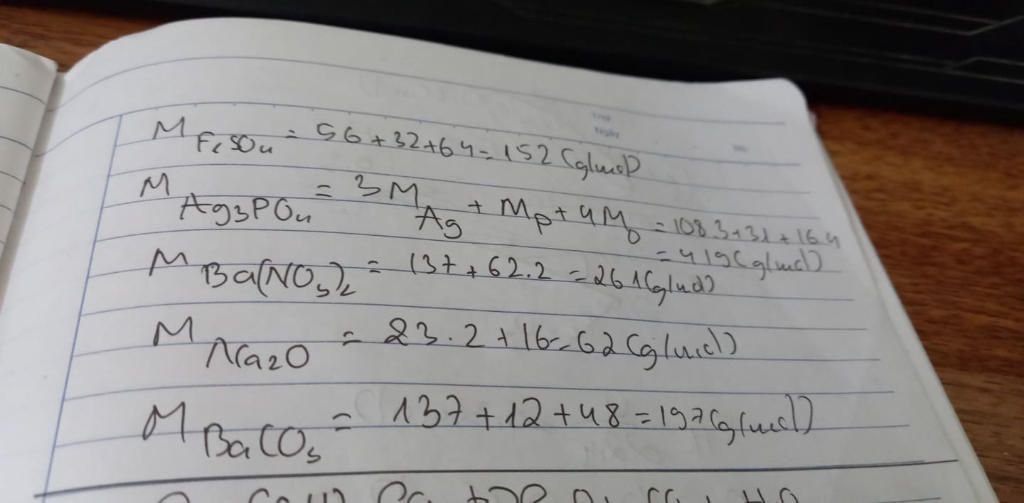 M FeSO4 = 56+32+64=152 (g/mol)
M Ag3PO4 = 3M Ag + Mp + 4M O = 108.3+31+16.4
= 419 (g/mol)
M Ba(NO3)2 = 137+62.2 = 261 (g/mol)
M Na2O = 23.2+16=62 (g/mol)
M BaCO3 = 137+12+48 = 197 (g/mol)